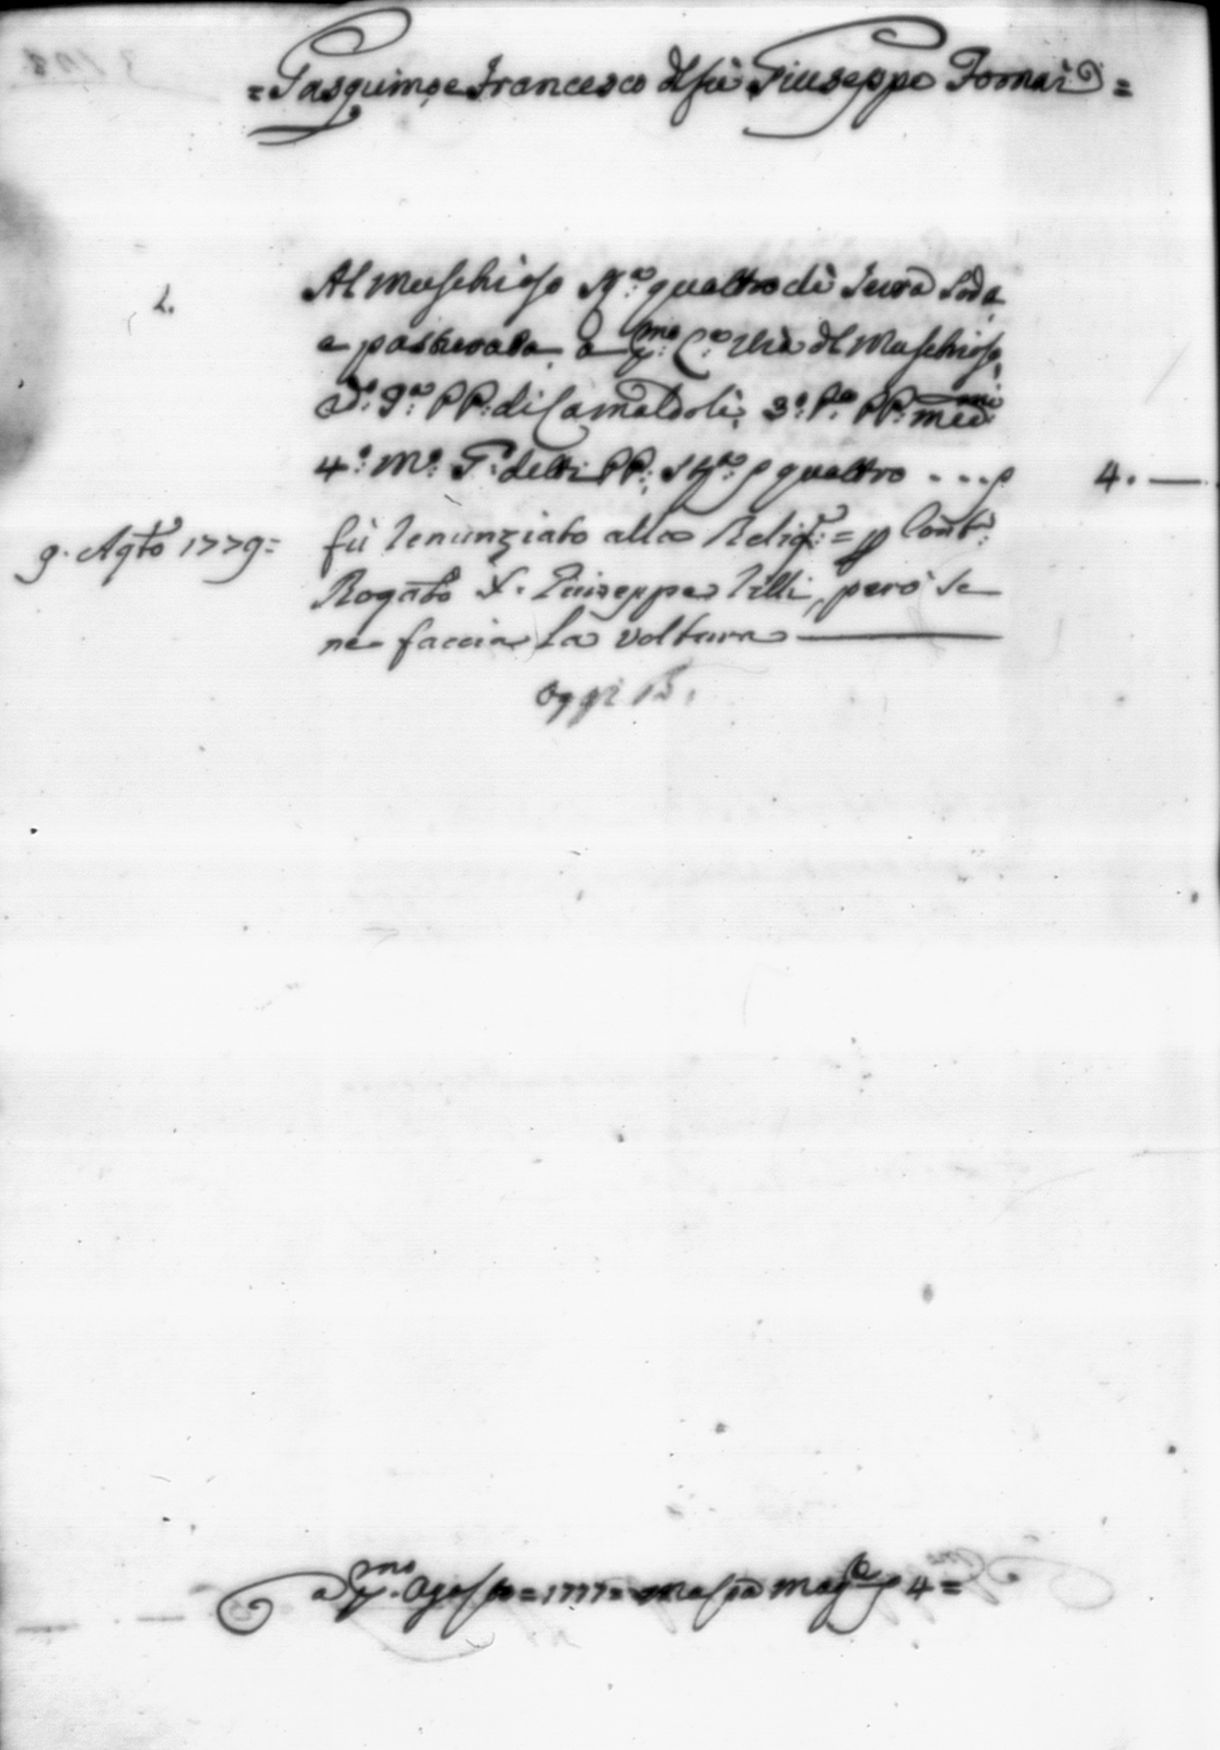 = Pasquino, e Francesco del fù Giuseppe Fornai =
1.
Al Muschioso St.a quattro di Terra Soda,
e pasturata, a p.mo C.o Via del Muschioso,
2.o P.a PP: di Camaldoli, 3.o P.a PP: med.mi
4.o M.o detti PP: St.a p quattro . . . p 4. —
9. Agto 1779 = fù renunziato alla Relig.e = p Cont:
Rogato S. Giuseppe Tilli, però se
ne faccia la voltura
oggi B.
a p.mo Agosto = 1777 = massa mag.e p 4 =